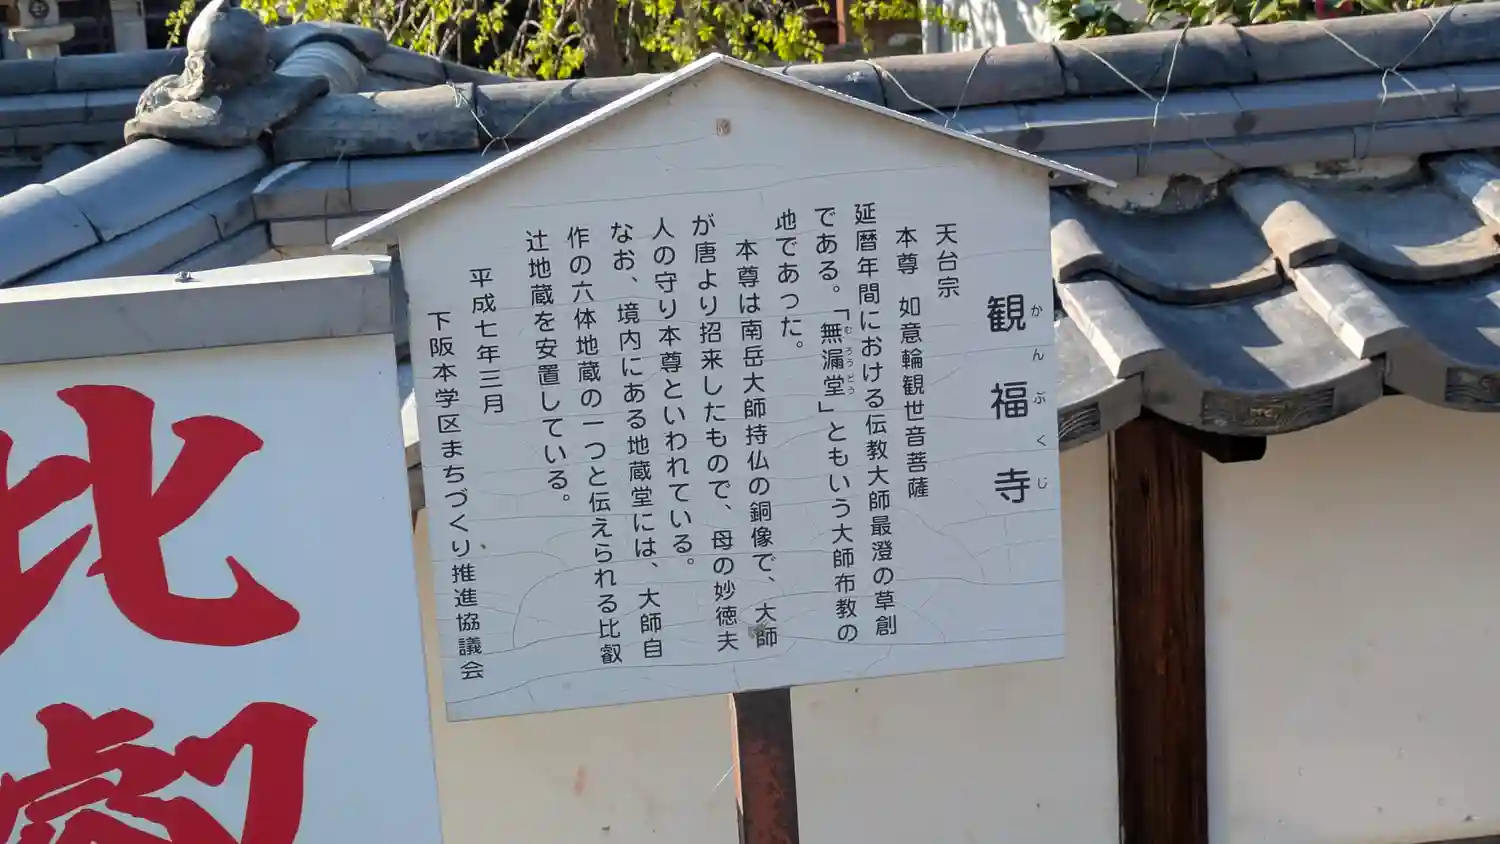 観福寺
かんぷくじ
天台宗
本尊 如意輪観世音菩薩
延暦年間における伝教大師最澄の草創
である。「無漏堂」ともいう大師布教の
むろうどう
地であった。
本尊は南岳大師持仏の銅像で、大師
が唐より招来したもので、母の妙徳夫
人の守り本尊といわれている。
なお、境内にある地蔵堂には、大師自
作の六体地蔵の一つと伝えられる比叡
辻地蔵を安置している。
平成七年三月
下阪本学区まちづくり推進協議会
比叡